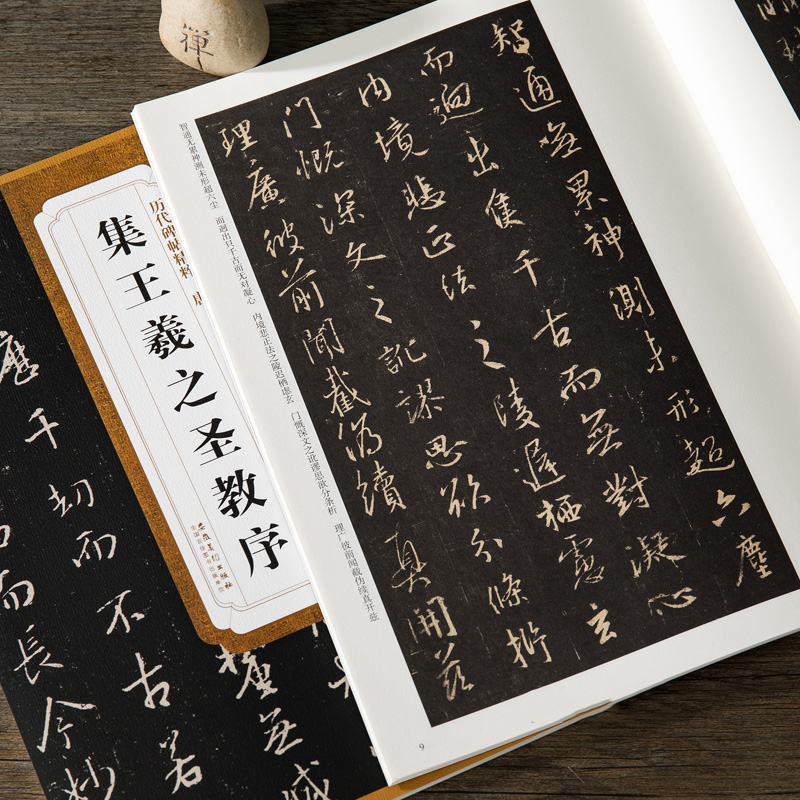 禪
智通無累神測未形超六塵
而迥出隻千古而無對凝心
内境悲正法之陵遲栖慮玄
門慨深文之訛謬思欲分條析
理廣彼前聞截偽續真開茲
智通无累神测未形超六尘 而迥出只千古而无对凝心 内境悲正法之陵迟栖虑玄 门慨深文之讹谬思欲分条析 理广彼前闻截伪续真开兹
9
历代碑帖精粹
集王羲之圣教序
安徽美术出版社
全国百佳图书出版单位
歷千劫而不古若
而長今妙
無滅